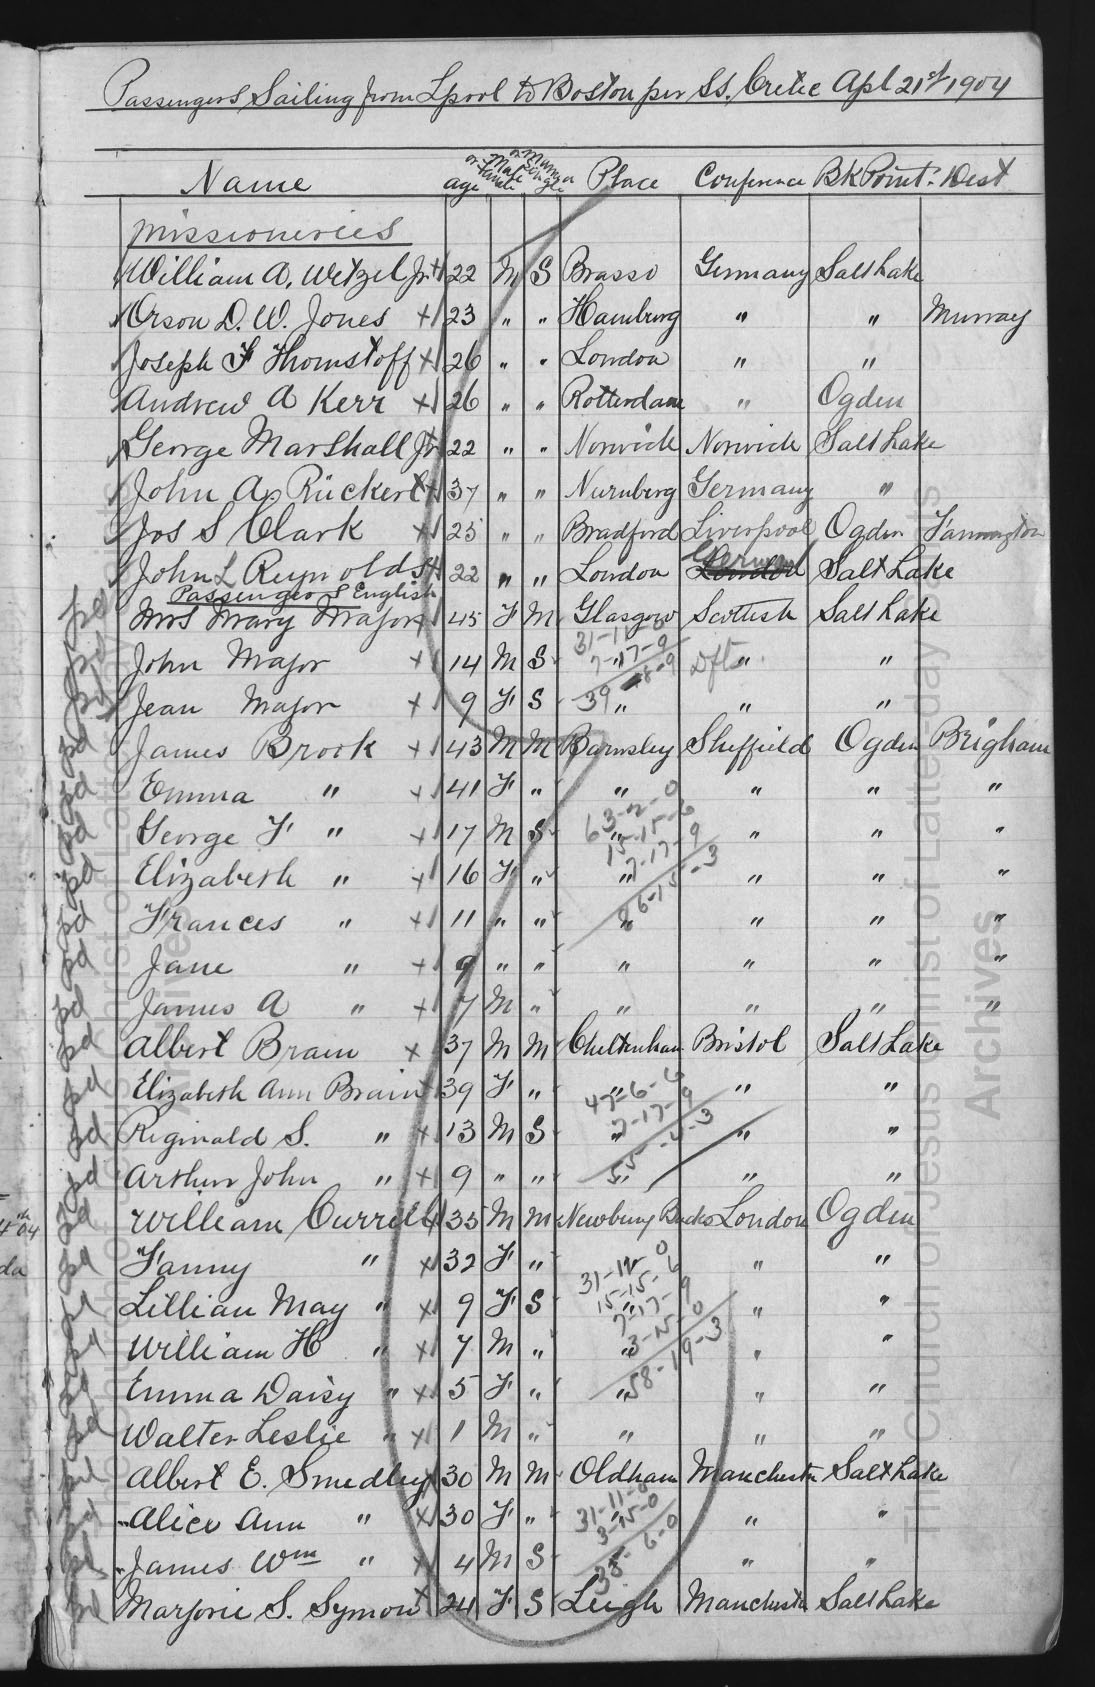 Passengers Sailing from Lpool to Boston per SS. Cretic Apl 21st 1904
Name age or Male Female or Married Single Place Conference BK Point. Dest
Missioneries
William A. Wetzel Jr x 22 M S Brasso Germany Salt Lake
Orson D. W. Jones x 23 " " Hamburg " " Murray
Joseph F Thomstoff x 26 " " London " "
Andrew A Kerr x 26 " " Rotterdam " Ogden
George Marshall Jr 22 " " Norwich Norwich Salt Lake
John A Rückert x 37 " " Nurnberg Germany "
Jos S Clark x 25 " " Bradford Liverpool Ogden Farmington
John L Reynolds x 22 " " London German London Salt Lake
Passengers English
Mrs Mary Major x 45 F M Glasgow Scottish Salt Lake
John Major x 14 M S " " "
Jean Major x 9 F S " " "
James Brook x 43 M M Barnsley Sheffield Ogden Brigham
Emma " x 41 F " " " " "
George F " x 17 M S " " " "
Elizabeth " x 16 F " " " " "
Frances " x 11 " " " " " "
Jane " x 9 " " " " " "
James A " x 7 M " " " " "
Albert Brain x 37 M M Cheltenham Bristol Salt Lake
Elizabeth Ann Brain x 39 F " " " "
Reginald S. " x 13 M S " " "
Arthur John " x 9 " " " " "
William Currell x 35 M M Newbury Bucks London Ogden
Fanny " x 32 F " " " "
Lillian May " x 9 F S " " "
William H " x 7 M " " " "
Emma Daisy " x 5 F " " " "
Walter Leslie " x 1 M " " " "
Albert E. Smedley x 30 M M Oldham Manchester Salt Lake
Alice Ann " x 30 F " " " "
James Wm " x 4 M S " "
Marjorie S. Symons x 24 F S Leigh Manchester Salt Lake
The Church of Jesus Christ of Latter-day Saints
Archives